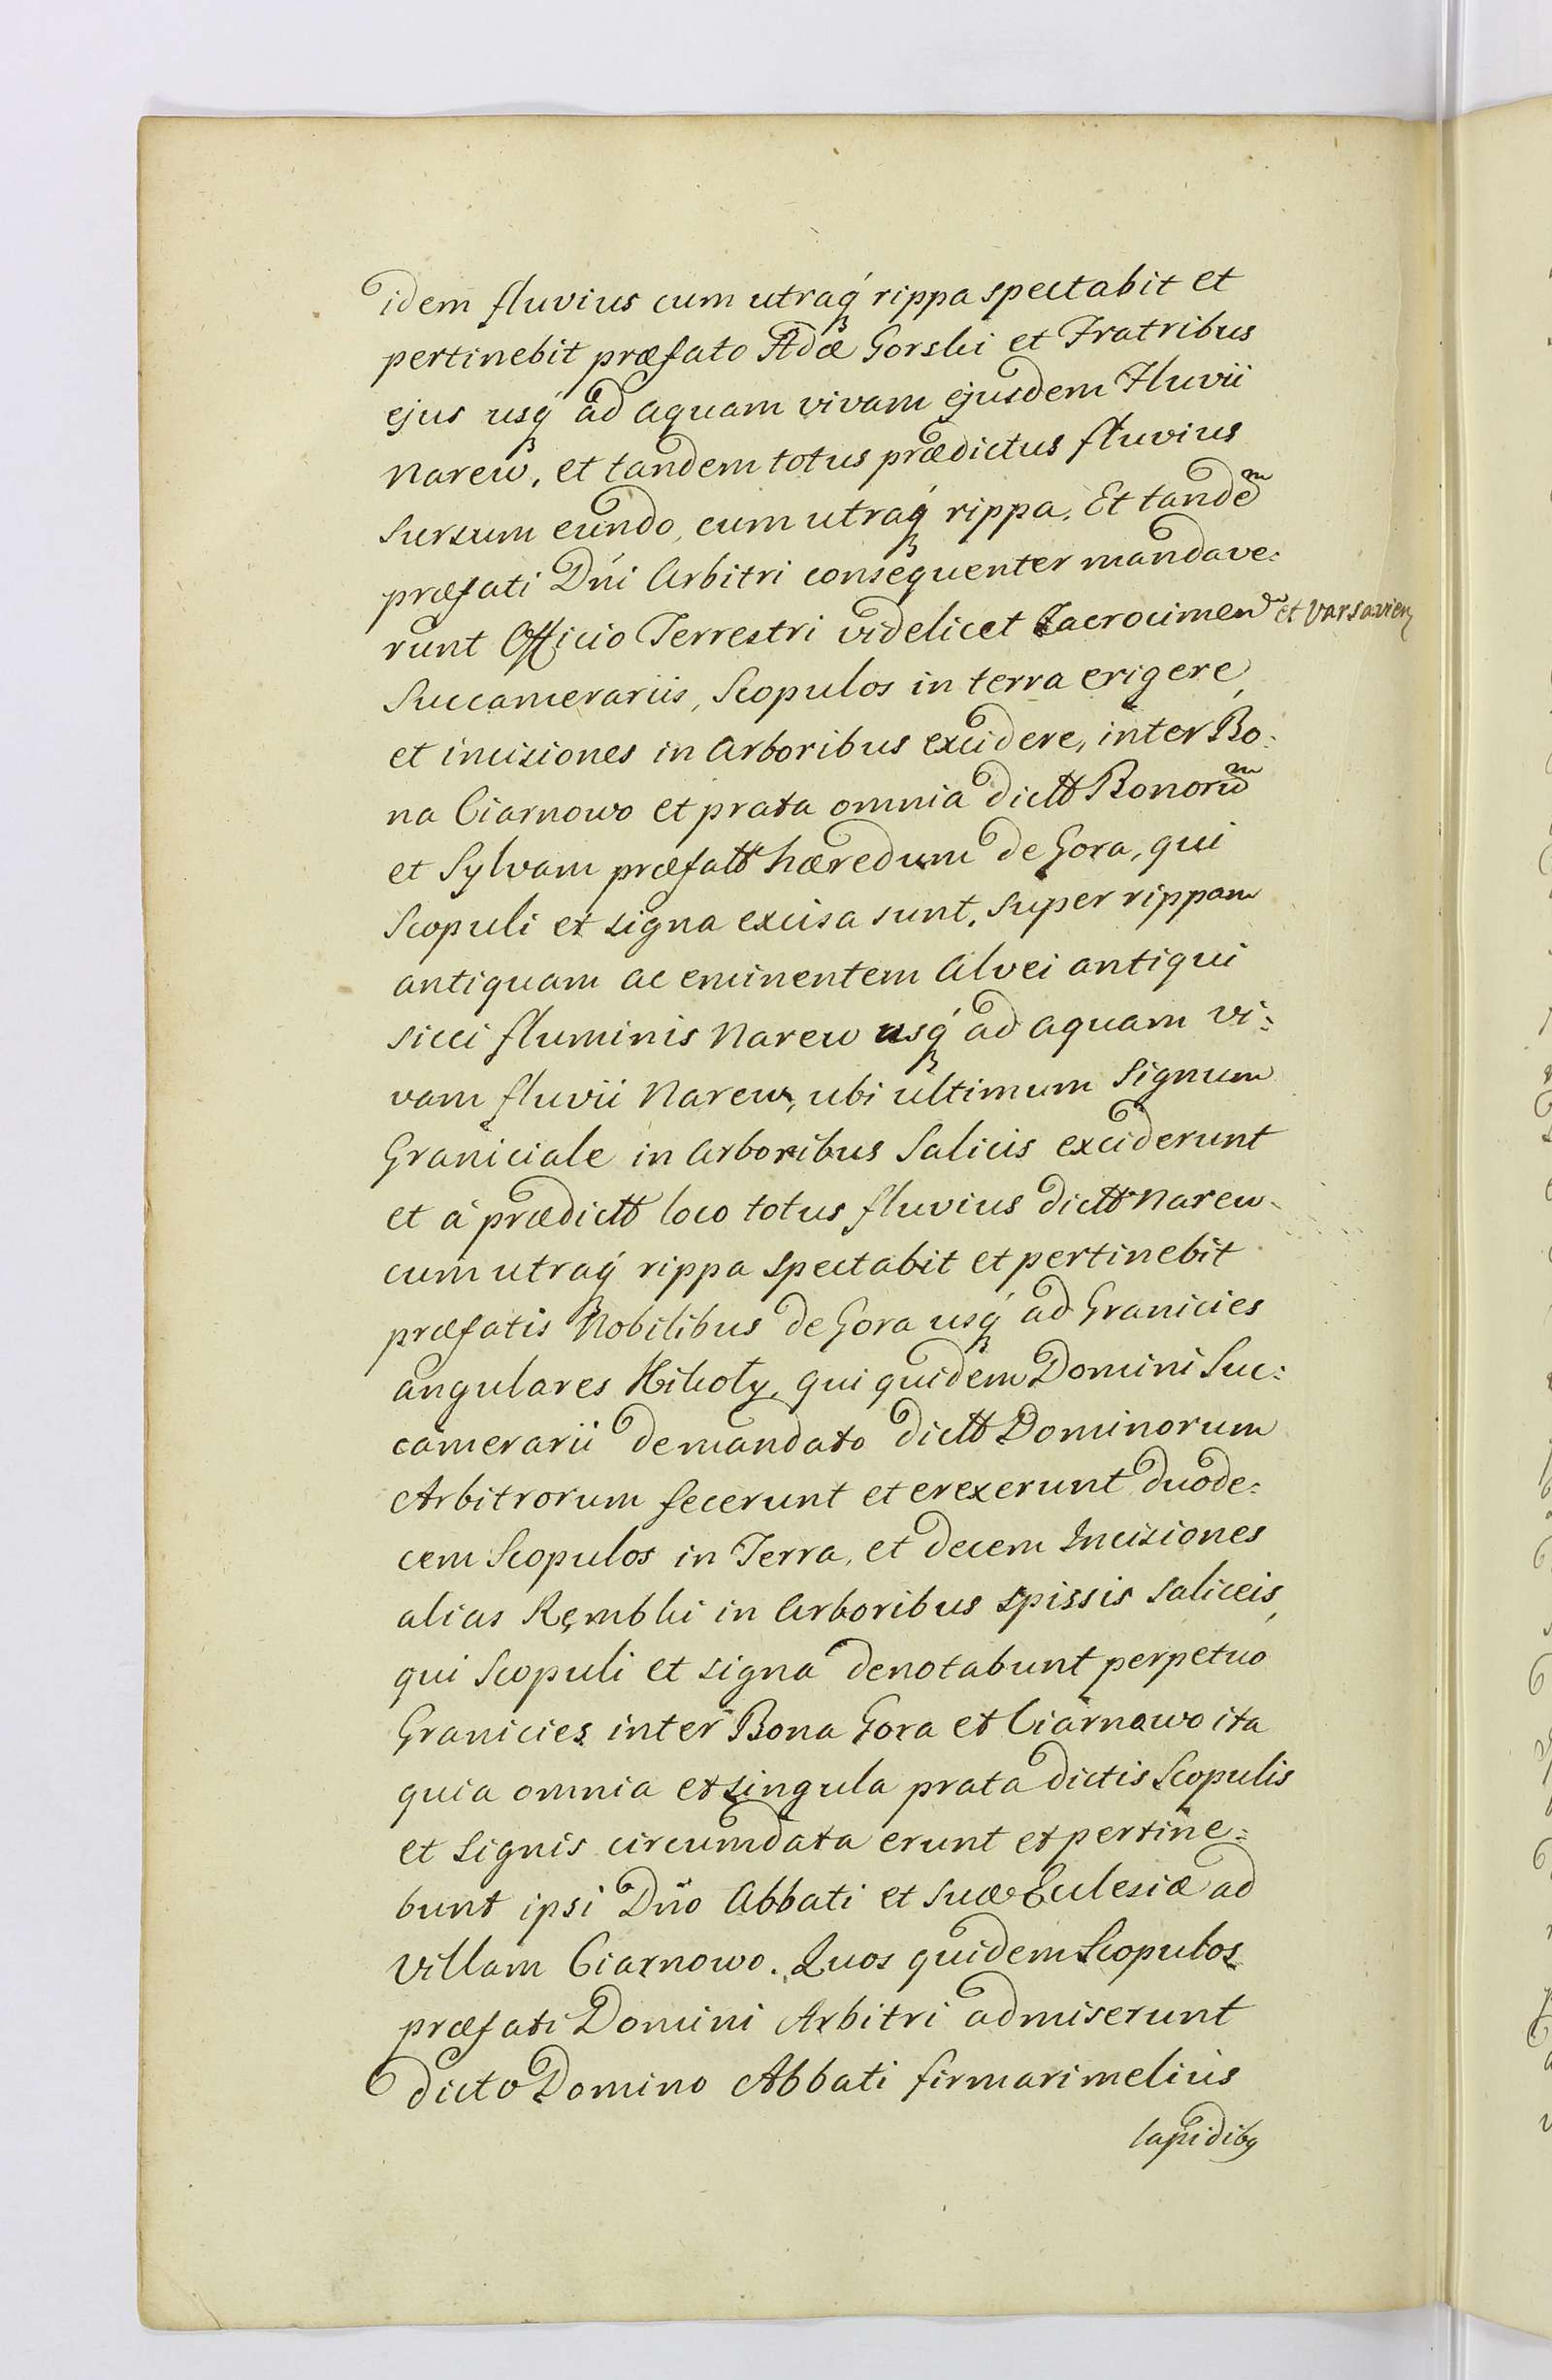 idem fluvius cum utraq́ꝫ rippa spectabit et
pertinebit præfato Adæ Gorski et Fratribus
ejus usq́ꝫ ad aquam vivam ejusdem Fluvii
Narew, et tandem totus prædictus fluvius
sursum eundo, cum utraq́ꝫ rippa. Et tandem
præfati Dńi Arbitri consequenter mandave:
runt Officio Terrestri videlicet Zacrocimen et Varsavien
Succamerariis, Scopulos in terra erigere,
et incisiones in Arboribus excidere, inter Bo:
na Ciarnowo et prata omnia dictt Bonorum
et Sylvam præfatt hæredum de Gora, qui
Scopuli et signa excisa sunt, super rippam
antiquam ac eminentem Alvei antiqui
sicci fluminis Narew usq́ꝫ ad aquam vi:
vam fluvii Narew, ubi ultimum Signum
Graniciale in Arboribus Salicis exciderunt
et à prædictt loco totus fluvius dictt Narew
cum utraq́ꝫ rippa spectabit et pertinebit
præfatis Nobilibus de Gora usq́ꝫ ad Granicies
angulares Nikoły, qui quidem Domini Suc:
camerarii demandato dictt Dominorum
Arbitrorum fecerunt et erexerunt duode:
cem Scopulos in Terra, et decem Incisiones
alias Ręmbki in Arboribus spissis saliceis,
qui Scopuli et signa denotabunt perpetuo
Granicies inter Bona Gora et Ciarnowo ita
quia omnia et singula prata dictis Scopulis
et signis circumdata erunt et pertine:
bunt ipsi Dño Abbati et suæ Eclesiæ ad
Villam Ciarnowo. Quos quidem Scopulos
præfati Domini Arbitri admiserunt
dicto Domino Abbati firmari melius
lapidibꝫ